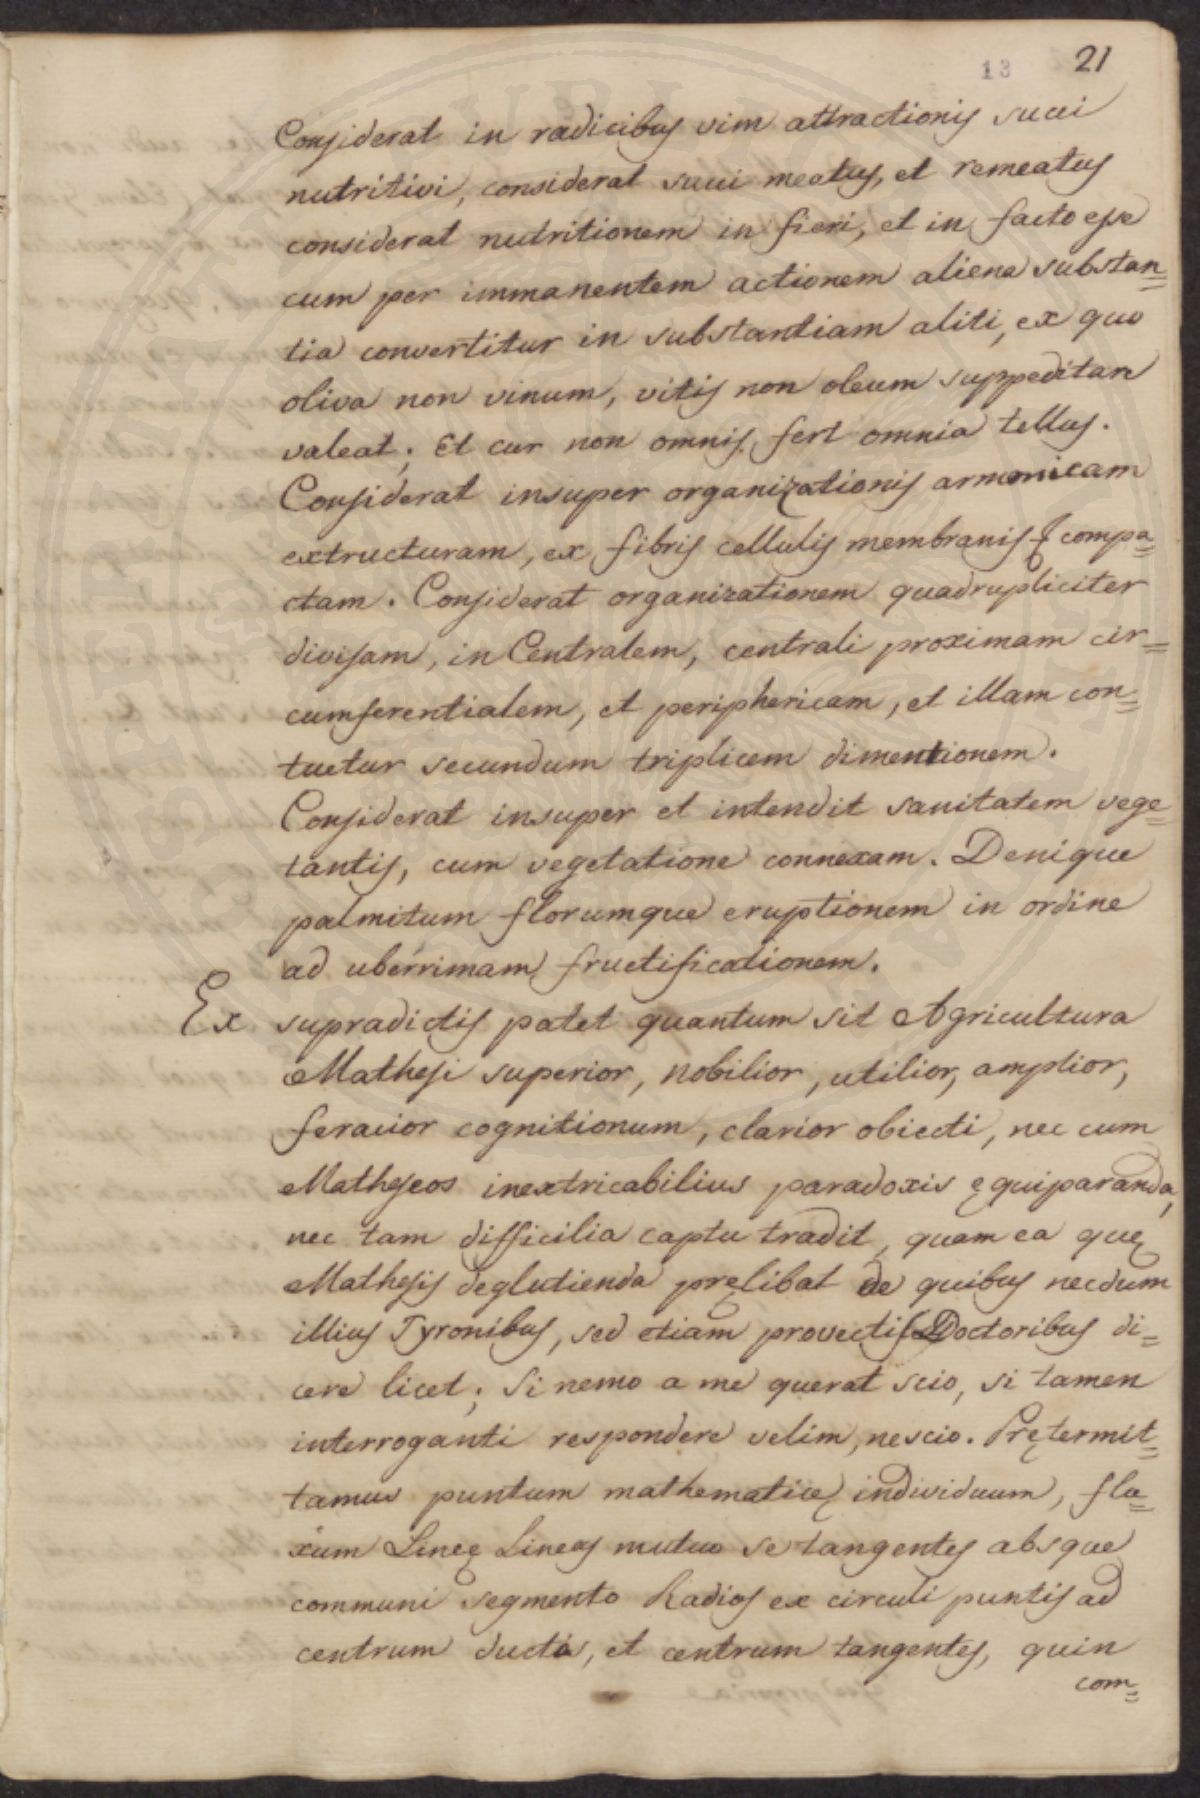 13 21
Considerat in radicibus vim attractionis succi
nutritivi, considerat succi meatus, et remeatus
considerat nutritionem in fieri, et in facto esse
cum per immanentem actionem aliena substan=
tia convertitur in substantiam aliti, ex quo
oliva non vinum, vitis non oleum suppeditare
valeat; Et cur non omnis fert omnia tellus.
Considerat insuper organizationis armonicam
extructuram, ex fibris cellulis membranis & compa=
ctam. Considerat organizationem quadrupliciter
divisam, in Centralem, centrali proximam cir=
cumferentialem, et periphericam, et illam con=
tuetur secundum triplicem dimentionem.
Considerat insuper et intendit sanitatem vege=
tantis, cum vegetatione connexam. Denique
palmitum florumque eruptionem in ordine
ad uberrimam fructificationem.
Ex supradictis patet quantum sit Agricultura
Mathesi superior, nobilior, utilior, amplior,
feracior cognitionum, clarior obiecti, nec cum
Matheseos inextricabilius paradoxis ęquiparanda,
nec tam difficilia captu tradit, quam ea quę
Mathesis deglutienda pręlibat de quibus necdum
illius Tyronibus, sed etiam provectis Doctoribus di=
cere licet; Si nemo a me querat scio, si tamen
interroganti respondere velim, nescio. Prętermit=
tamus puntum mathematicę individuum, flu=
xum Lineę Lineas mutuo se tangentes absque
communi segmento Radios ex circuli puntis ad
centrum ducta, et centrum tangentes, quin
com=